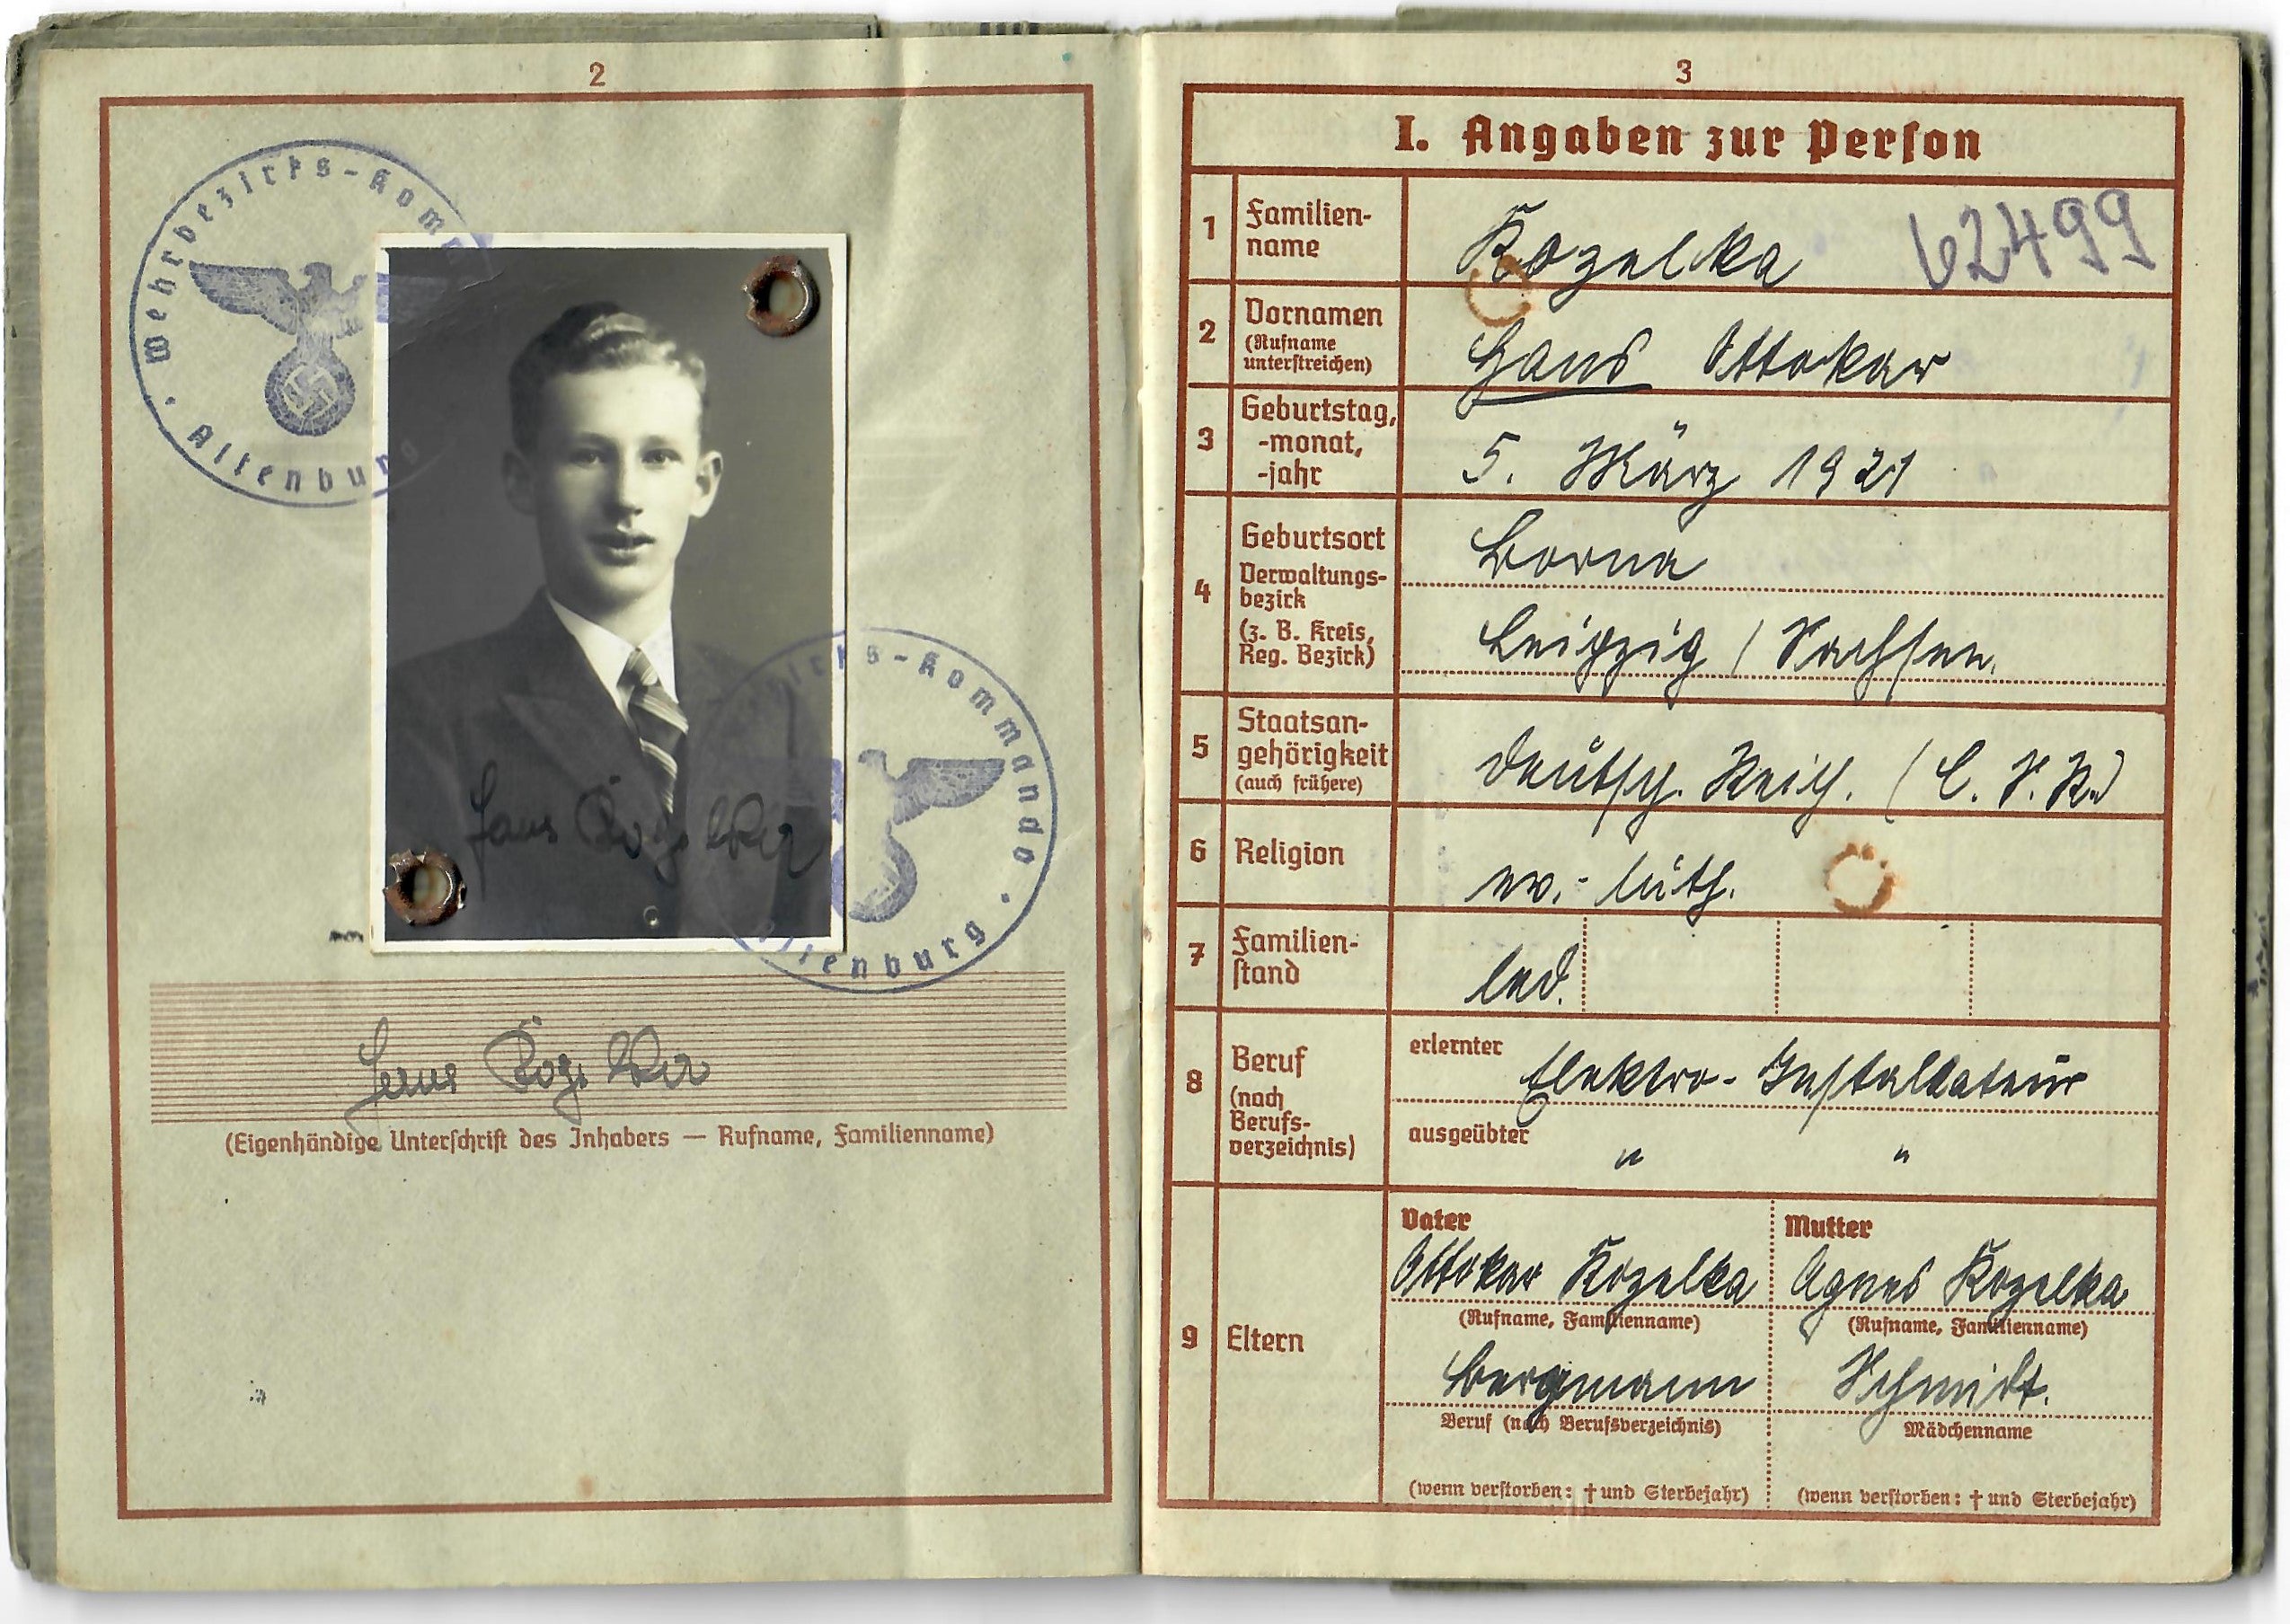 2
Wehrbezirks-Komm
Altenburg
Hans Kozelka
zirks-Kommando
Altenburg
Hans Kozelka
(Eigenhändige Unterschrift des Inhabers — Rufname, Familienname)
3
I. Angaben zur Person
1 Familien-
name
Kozelka 62499
2 Vornamen
(Rufname
unterstreichen)
Hans Ottokar
3 Geburtstag,
-monat,
-jahr
5. März 1921
4 Geburtsort
Verwaltungs-
bezirk
(z. B. Kreis,
Reg. Bezirk)
Borna
Leipzig / Sachsen.
5 Staatsan-
gehörigkeit
(auch frühere)
Deutsch. Reich. (C. S. R.)
6 Religion
ev.- luth.
7 Familien-
stand
led.
8 Beruf
(nach
Berufs-
verzeichnis)
erlernter Elektro-Installateur
ausgeübter " "
9 Eltern
Vater
Ottokar Kozelka
(Rufname, Familienname)
Bergmann
Beruf (nach Berufsverzeichnis)
(wenn verstorben: † und Sterbejahr)
Mutter
Agnes Kozelka
(Rufname, Familienname)
Schmidt.
Mädchenname
(wenn verstorben: † und Sterbejahr)